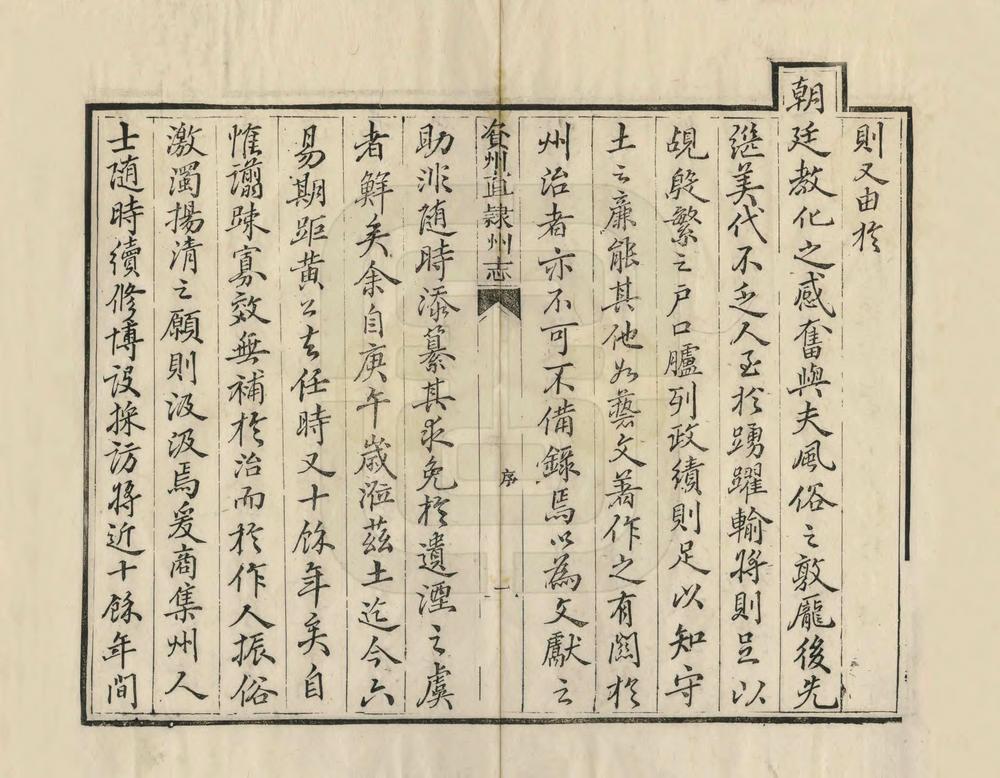 則又由於
朝廷教化之感奮與夫風俗之敦龐後先
繼美代不乏人至於踴躍輸將則足以
覘殷繁之戶口臚列政績則足以知守
土之廉能其他如藝文著作之有關於
州治者亦不可不備錄焉以為文獻之
資州直隸州志
序
一
助非隨時添纂其求免於遺湮之虞
者鮮矣余自庚午歲涖茲土迄今六
易期距黃公去任時又十餘年矣自
惟譾踈寡效無補於治而於作人振俗
激濁揚清之願則汲汲焉爰商集州人
士隨時續修博設採訪將近十餘年間